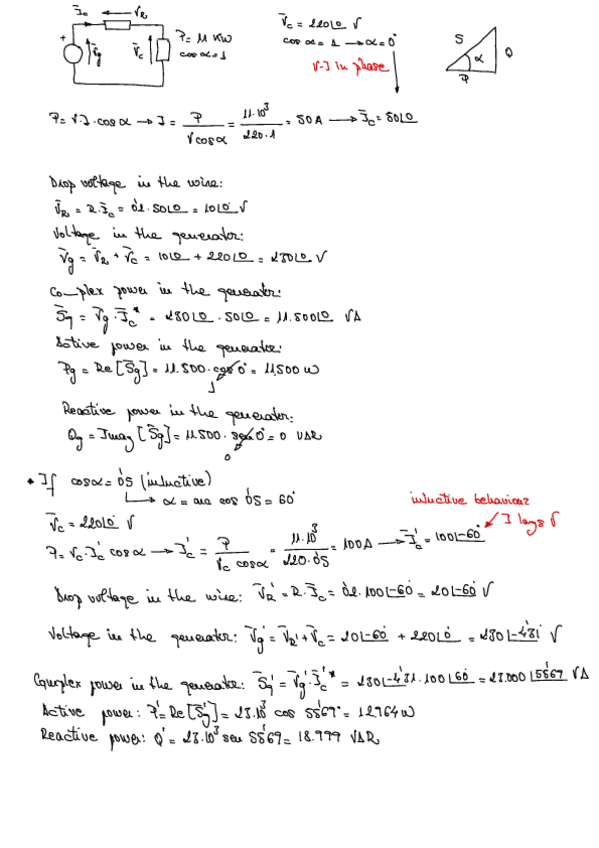 Īc V̄R
+ V̄g V̄c P = 11 KW
cosα = 1
V̄c = 220∠0 V
cosα = 1 → α = 0°
V-I in phase
S Q α P
P = V·I·cosα → I = P / V cosα = 11·10³ / 220·1 = 50 A → Īc = 50∠0
Drop voltage in the wire:
V̄R = R·Īc = 0'2·50∠0 = 10∠0° V
Voltage in the generator:
V̄g = V̄R + V̄c = 10∠0 + 220∠0 = 230∠0 V
Complex power in the generator:
S̄g = V̄g·Īc* = 230∠0·50∠0 = 11.500∠0 VA
Active power in the generator:
Pg = Re[S̄g] = 11.500·cos 0° = 11,500 W
1
Reactive power in the generator:
Qg = Imag[S̄g] = 11500·sen 0° = 0 VAR
0
• If cosα = 0'5 (inductive)
→ α = arc cos 0'5 = 60°
inductive behaviour
I lags V
V̄c = 220∠0° V
P = Vc·I'c cosα → I'c = P / Vc cosα = 11·10³ / 220·0'5 = 100 A → Ī'c = 100∠-60°
Drop voltage in the wire: V̄R' = R·Īc' = 0'2·100∠-60 = 20∠-60° V
Voltage in the generator: V̄g' = V̄R' + V̄c = 20∠-60 + 220∠0 = 230∠-4'31° V
Complex power in the generator: S̄g' = V̄g'·Īc'* = 230∠-4'31·100∠60 = 23.000∠55'67 VA
Active power: P' = Re[S̄g'] = 23·10³ cos 55'67° = 12964 W
Reactive power: Q' = 23·10³ sen 55'67 = 18.999 VAR